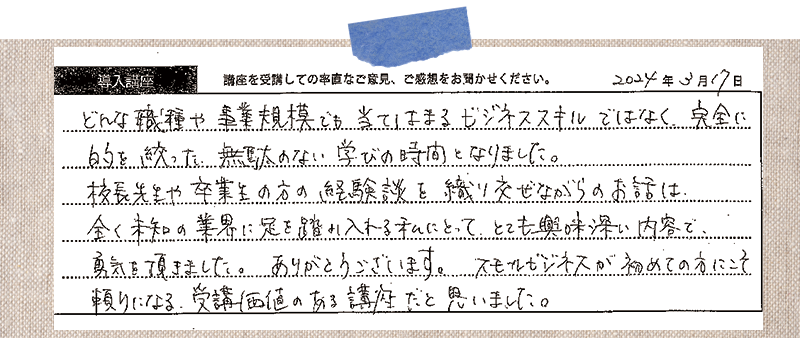 導入講座 講座を受講しての率直なご意見、ご感想をお聞かせください。 2024年3月17日
どんな職種や事業規模でも当てはまるビジネススキルではなく、完全に
的を絞った、無駄のない学びの時間となりました。
校長先生や卒業生の方の経験談を織り交ぜながらのお話は、
全く未知の業界に足を踏み入れる私にとって、とても興味深い内容で、
勇気を頂きました。ありがとうございます。スモールビジネスが初めての方にこそ
頼りになる、受講価値のある講座だと思いました。